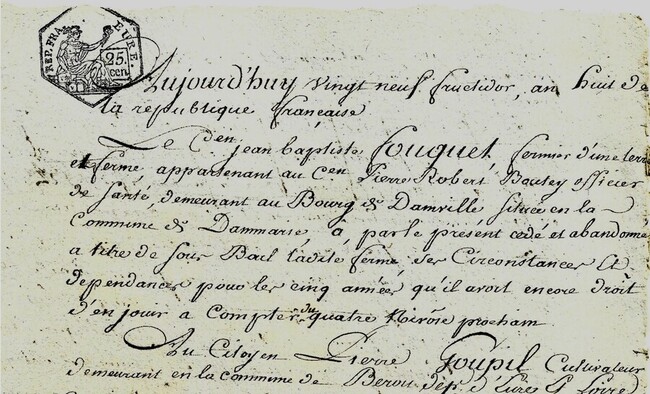 REP. FRA. EURE.
25.
cen
Aujourd'huy vingt neuf fructidor, an huit de
la republique française
Le Cden jean baptiste Fouquet fermier d'une terre
et ferme, appartenant au Cen Pierre Robert officier
de Santé, demeurant au Bourg de Damville située en la
Commune de Dammarie, a par le présent cedé et abandonné
a titre de sous Bail ladite ferme ses Circonstances Et
dependances pour les cinq années qu'il avoit encore droit
d'en jouir a Compter du quatre Nivôse prochain
Au Citoyen Pierre Goupil Cultivateur
demeurant en la commune de dép. d'Eure Et Loire